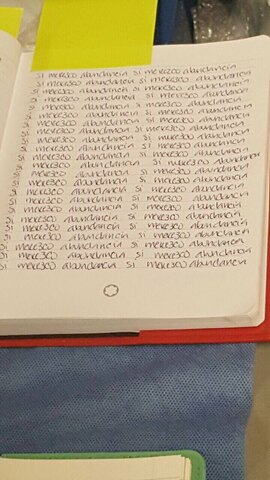 si merezco abundancia si merezco abundancia
si merezco abundancia si merezco abundancia
si merezco abundancia si merezco abundancia
si merezco abundancia si merezco abundancia
si merezco abundancia si merezco abundancia
si merezco abundancia si merezco abundancia
si merezco abundancia si merezco abundancia
si merezco abundancia si merezco abundancia
si merezco abundancia si merezco abundancia
si merezco abundancia si merezco abundancia
si merezco abundancia si merezco abundancia
si merezco abundancia si merezco abundancia
si merezco abundancia si merezco abundancia
si merezco abundancia si merezco abundancia
si merezco abundancia si merezco abundancia
si merezco abundancia si merezco abundancia
si merezco abundancia si merezco abundancia
si merezco abundancia si merezco abundancia
si merezco abundancia si merezco abundancia
si merezco abundancia si merezco abundancia
si merezco abundancia si merezco abundancia
si merezco abundancia si merezco abundancia